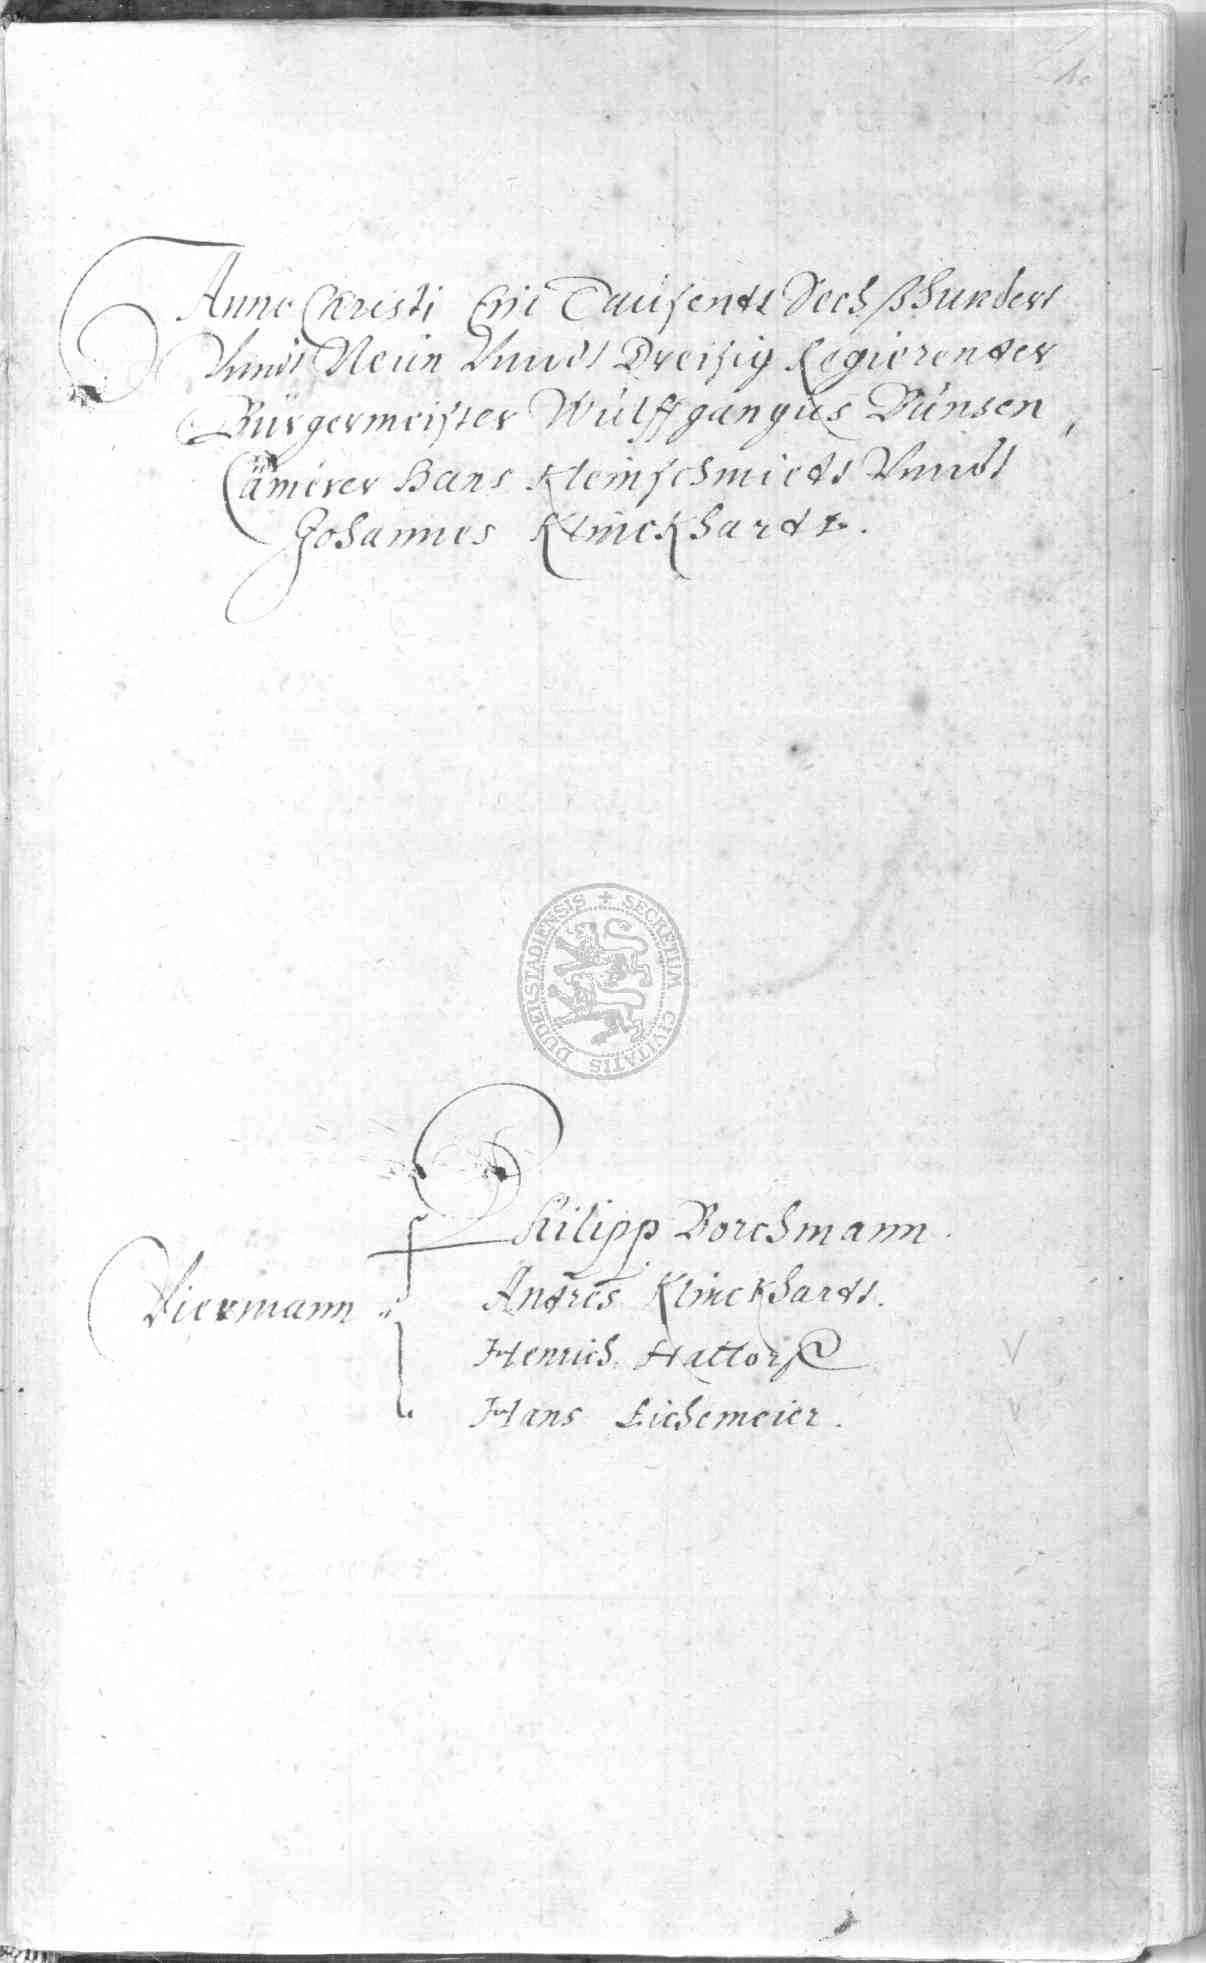 Anno Christi Ein Tausendt Sechßhundert
Vnndt Neün Vnndt Dreisig Regierender
Bürgermeister Wülffgangus Bünsen,
Cämerer Hans Kleinschmiedt Vnndt
Johannes Klinckhardt.
SECRETUM CIVITATIS DUDERSTADIENSIS
Philipp Borchmann.
Viermann Andres Klinckhardt.
Henrich Hattorf
Hans Eichemeier.